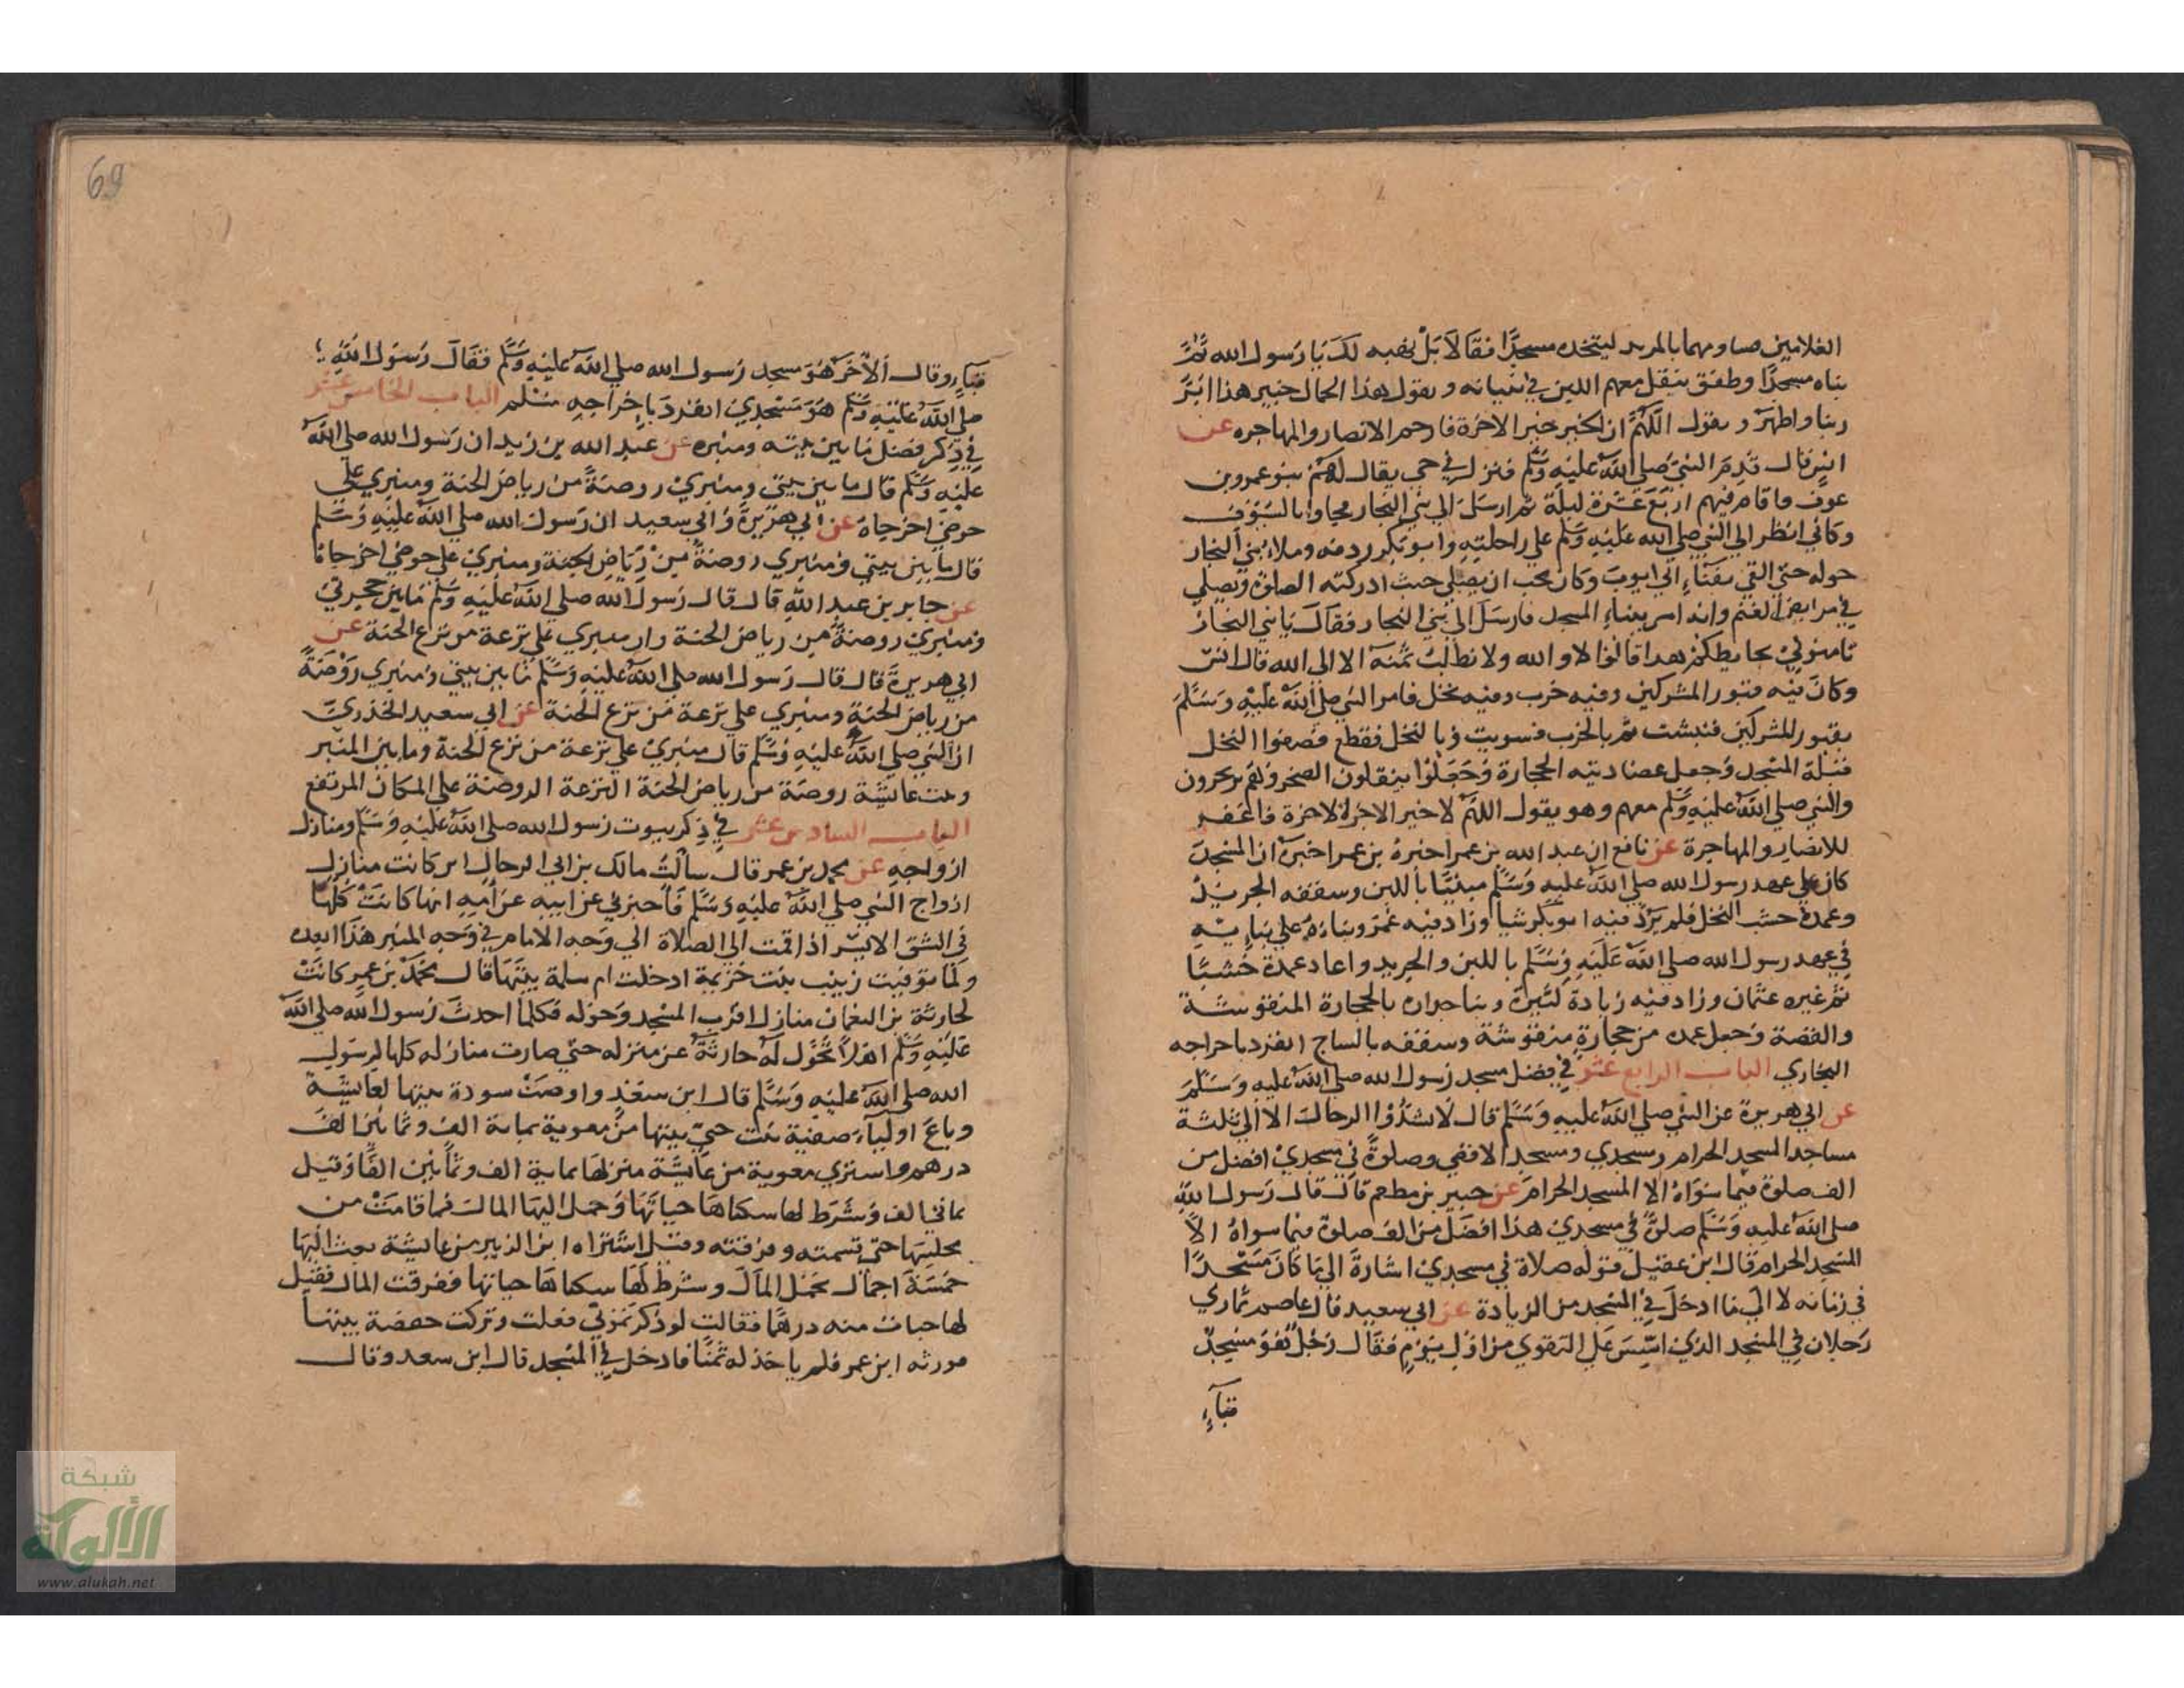 الغلامين فساومهما بالمربد ليتخذه مسجدًا فقالا لا بل نهبه لك يا رسول الله ثمَّ
بناه مسجدًا وطفق ينقل معهم اللبن في بنيانه ويقول هذا الحمال لا حمال خيبر هذا ابرّ
ربنا واطهر ويقول اللهم ان الخير خير الاخرة فارحم الانصار والمهاجره عن
انس قال قدم النبي صلى الله عليه وسلم فنزل في حي يقال لهم بنو عمرو بن
عوف فاقام فيهم اربع عشرة ليلة ثم ارسل الى بني النجار فجاوا بالسيوف
وكاني انظر الي النبي صلي الله عليه وسلم علي راحلته وابو بكر ردفه وملاء بني النجار
حوله حتي القي بفناء ابي ايوب وكان يحب ان يصلي حيث ادركته الصلوة ويصلي
في مرابض الغنم وانه امر ببناء المسجد فارسل الي بني النجار فقال يا بني النجار
ثامنوني بحايطكم هذا قالوا لا والله ولا نطلب ثمنه الا الي الله قال انس
وكان فيه قبور المشركين وفيه خرب وفيه نخل فامر النبي صلي الله عليه وسلم
بقبور المشركين فنبشت ثم بالخرب فسويت وبالنخل فقطع فصفوا النخل
قبلة المسجد وجعل عضادتيه الحجارة وجعلوا ينقلون الصخر وهم يرتجزون
والنبي صلي الله عليه وسلم معهم وهو يقول اللهم لا خير الا خير الاخرة فاغفر
للانصار والمهاجرة عن نافع ان عبد الله بن عمر اخبره بن عمر اخبره ان المسجد
كان علي عهد رسول الله صلي الله عليه وسلم مبنيًا باللبن وسقفه الجريد
وعمده خشب النخل فلم يزد فيه ابو بكر شيا وزاد فيه عمر وبناه علي بنائه
في عهد رسول الله صلي الله عليه وسلم باللبن والجريد واعاد عمده خشبًا
ثم غيره عثمان وزاد فيه زيادة كثيرة وبنا جداره بالحجارة المنقوشة
والقصة وجعل عمده من حجارة منقوشة وسقفه بالساج انفرد باخراجه
البخاري الباب الرابع عشر في فضل مسجد رسول الله صلي الله عليه وسلم
عن ابي هريرة عن النبي صلي الله عليه وسلم قال لا تشدوا الرحال الا الي ثلثة
مساجد المسجد الحرام ومسجدي ومسجد الاقصي وصلوة في مسجدي افضل من
الف صلوة فيما سواه الا المسجد الحرام عن جبير بن مطعم قال قال رسول الله
صلي الله عليه وسلم صلوة في مسجدي هذا افضل من الف صلوة فيما سواه الا
المسجد الحرام قال ابن عقيل قوله صلاة في مسجدي اشارة الي ما كان مسجدًا
في زمانه لا الي ما ادخل في المسجد من الزيادة عن ابي سعيد قال عاصم تماري
رجلان في المسجد الذي اسس علي التقوي من اول يوم فقال رجل هو مسجد
قباء
69
قباء وقال الاخر هو مسجد رسول الله صلي الله عليه وسلم فقال رسول الله
صلي الله عليه وسلم هو مسجدي انفرد باخراجه مسلم الباب الخامس عشر
في ذكر فضل ما بين بيته ومنبره عن عبد الله بن زيد ان رسول الله صلي الله
عليه وسلم قال ما بين بيتي ومنبري روضة من رياض الجنة ومنبري علي
حوضي اخرجاه عن ابي هريرة وابي سعيد ان رسول الله صلي الله عليه وسلم
قال ما بين بيتي ومنبري روضة من رياض الجنة ومنبري علي حوضي اخرجاه
عن جابر بن عبد الله قال قال رسول الله صلي الله عليه وسلم ما بين حجرتي
ومنبري روضة من رياض الجنة وان منبري علي ترعة من ترع الجنة عن
ابي هريرة قال قال رسول الله صلي الله عليه وسلم ما بين بيتي ومنبري روضة
من رياض الجنة ومنبري علي ترعة من ترع الجنة عن ابي سعيد الخدري
ان النبي صلي الله عليه وسلم قال منبري علي ترعة من ترع الجنة وما بين المنبر
وبيت عايشة روضة من رياض الجنة الترعة الروضة علي المكان المرتفع
الباب السادس عشر في ذكر بيوت رسول الله صلي الله عليه وسلم ومنازل
ازواجه عن محمد بن عمر قال سالت مالك بن ابي الرجال اين كانت منازل
ازواج النبي صلي الله عليه وسلم فاخبرني عن ابيه عن امه انها كانت كلها
في الشق الايسر اذا قمت الي الصلاة الي وجه الامام في وجه المنبر هذا ابعده
ولما توفيت زينب بنت خزيمة ادخلت ام سلمة بيتها قال محمد بن عمر كانت
لحارثة بن النعمان منازل قرب المسجد وحوله فكلما احدث رسول الله صلي الله
عليه وسلم اهلا تحول له حارثة عن منزله حتي صارت منازله كلها لرسول
الله صلي الله عليه وسلم قال ابن سعد واوصت سودة ببيتها لعايشة
وباع اولياء صفية بنت حيي بيتها من معوية بماية الف وثمانين الف
درهم واشتري معوية من عايشة منزلها بماية الف وثمانين الفًا وقيل
بماتي الف وشرط لها سكناها حياتها وحمل اليها المال فما قامت من
مجلسها حتي قسمته وفرقته وقيل اشتراه ابن الزبير من عايشة بعث اليها
خمسة اجمال تحمل المال وشرط لها سكناها حياتها ففرقت المال فقيل
لها خبات منه درهمًا فقالت لو ذكرتموني فعلت وتركت حفصة بيتها
فورثه ابن عمر فلم ياخذ له ثمنًا فادخل في المسجد قال ابن سعد وقال
شبكة
الألوكة
www.alukah.net